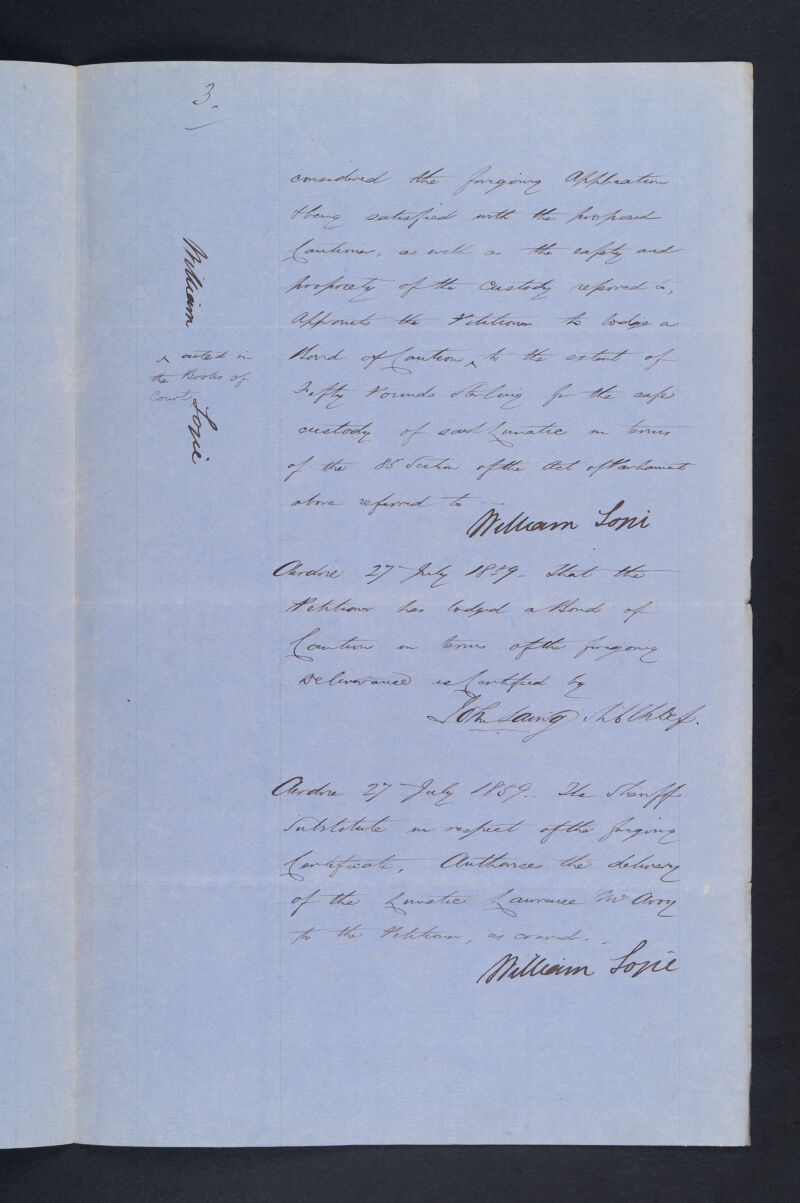 3.
considered the foregoing Application
& being satisfied with the proposed
Cautioner, as well as the safety and
propriety of the custody referred to,
Appoints the Petitioner to lodge a
Bond of Caution ^ to the extent of
Fifty Pounds Sterling for the safe
custody of said Lunatic in terms
of the 85 Section of the Act of Parliament
above referred to
William
^ acted in
the Books of
Court
Logie
William Logie
Airdrie 27 July 1859. That the
Petitioner has lodged a Bond of
Caution in terms of the foregoing
Deliverance is Certified by
John Laing
Airdrie 27 July 1859. The Sheriff
Substitute in respect of the foregoing
Certificate, Authorises the delivery
of the Lunatic Laurence McAvoy
to the Petitioner, as craved.
William Logie